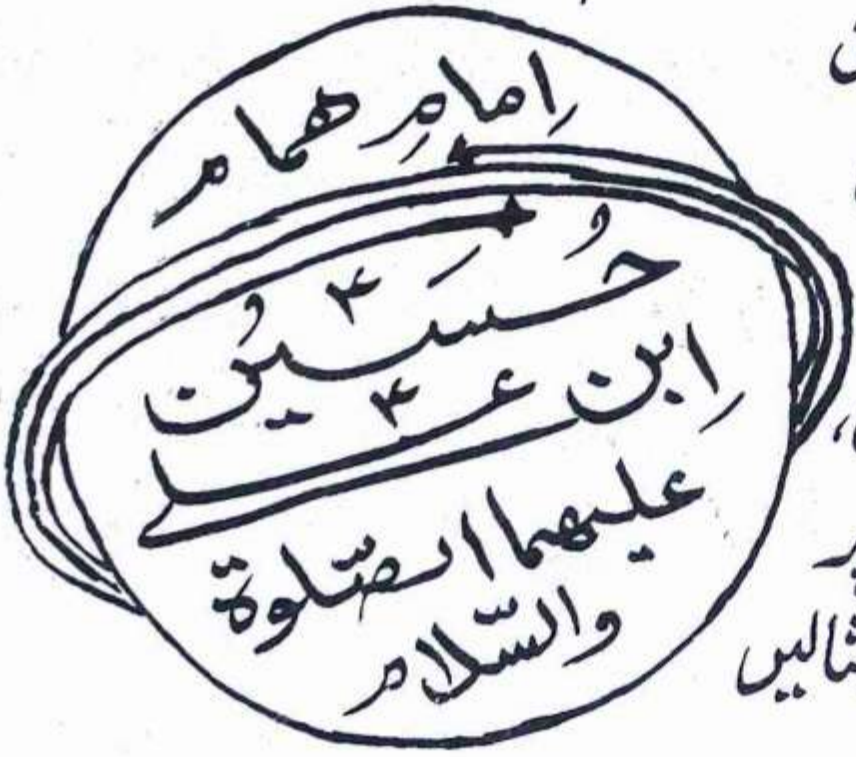 اِمامِ ھمام
حُسَیُن
اِبن علی
علیھما الصّلوة
والسّلام
ثالیں